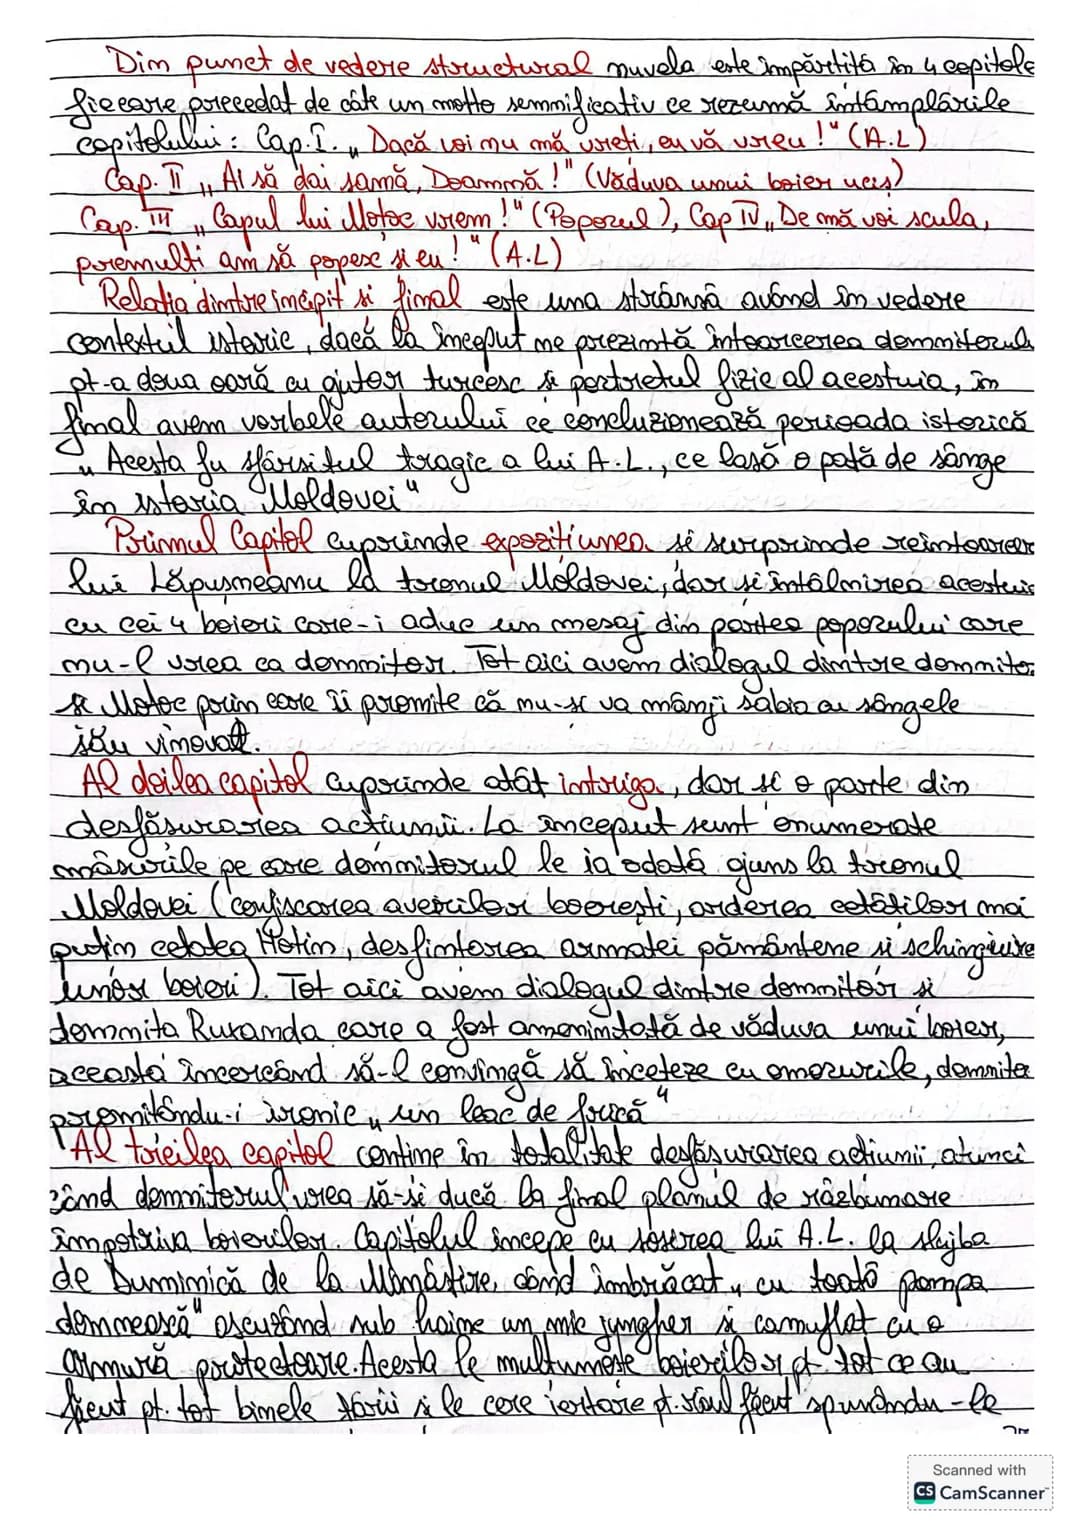 Din punct de vedere structural nuvela este împărțită în 4 capitole
fiecare precedat de câte un motto semnificativ ce rezumă întâmplările
capitolului: Cap. I. „Dacă voi nu mă vreți, eu vă vreu!" (A.L)
Cap. II „Ai să dai samă, Doamnă!" (Văduva unui boier ucis)
Cap. III „Capul lui Moțoc vrem!" (Poporul), Cap IV „De mă voi scula,
premulți am să popesc și eu!" (A.L)
Relația dintre incipit și final este una strânsă având în vedere
contextul istoric, dacă la început ne prezintă întoarcerea domnitorului
pt-a doua oară cu ajutor turcesc și portretul fizic al acestuia, în
final avem vorbele autorului ce concluzionează perioada istorică
„Acesta fu sfârșitul tragic a lui A.L., ce lasă o pată de sânge
în istoria Moldovei"
Primul Capitol cuprinde expozițiunea și surprinde reîntoarcer
lui Lăpușneanu la tronul Moldovei, dar și întâlnirea acestuia
cu cei 4 boieri care-i aduc un mesaj din partea poporului care
nu-l vrea ca domnitor. Tot aici avem dialogul dintre domnitor
și Moțoc prin care îi promite că nu-și va mânji sabia cu sângele
său vinovat.
Al doilea capitol cuprinde atât intriga, dar și o parte din
desfășurarea acțiunii. La început sunt enumerate
măsurile pe care domnitorul le ia odată ajuns la tronul
Moldovei (confiscarea averilor boerești, arderea cetăților mai
puțin cetatea Hotin, desființarea armatei pământene și schingiuire
unor boieri). Tot aici avem dialogul dintre domnitor și
domnița Ruxanda care a fost amenințată de văduva unui boier,
aceasta încercând să-l convingă să înceteze cu omorurile, domnitor
promitându-i ironic „un leac de frică"
Al treilea capitol conține în totalitate desfășurarea acțiunii, atunci
când domnitorul vrea să-și ducă la final planul de răzbunare
împotriva boierilor. Capitolul începe cu sosirea lui A.L. la slujba
de Duminică de la Mănăstire, când îmbrăcat „cu toată pompa
domnească" ascuzând sub haine un mic jungher și camuflat cu o
armură protectoare. Acesta le mulțumește boierilor pt. tot ce au
făcut pt. tot binele țării și le cere iertare pt. răul făcut spunându-le
Scanned with
CS CamScanner